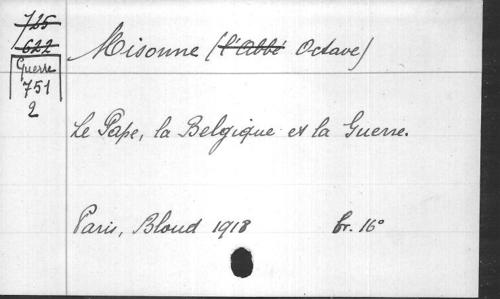 725
622
Guerre
751
2
Misonne (l'Abbé Octave)
Le Pape, la Belgique et la Guerre.
Paris, Bloud 1918 br. 16°